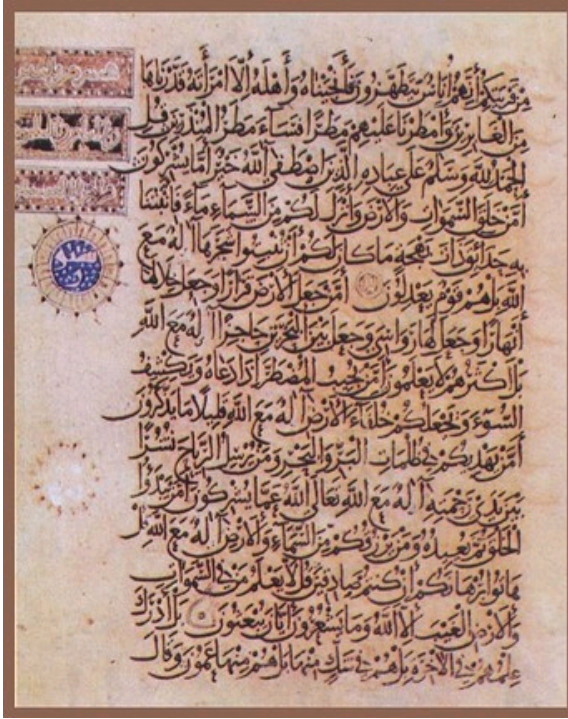 من قريتكم إنهم أناس يتطهرون فأنجيناه وأهله إلا امرأته قدرناها
من الغابرين وأمطرنا عليهم مطرا فساء مطر المنذرين قل
الحمد لله وسلام على عباده الذين اصطفى آلله خير أما يشركون
أمن خلق السموات والأرض وأنزل لكم من السماء ماء فأنبتنا
به حدائق ذات بهجة ما كان لكم أن تنبتوا شجرها أإله مع
الله بل هم قوم يعدلون أمن جعل الأرض قرارا وجعل خلالها
أنهارا وجعل لها رواسي وجعل بين البحرين حاجزا أإله مع الله
بل أكثرهم لا يعلمون أمن يجيب المضطر إذا دعاه ويكشف
السوء ويجعلكم خلفاء الأرض أإله مع الله قليلا ما يذكرون
أمن يهديكم في ظلمات البر والبحر ومن يرسل الرياح نشرا
بين يدي رحمته أإله مع الله تعالى الله عما يشركون أمن يبدؤا
الخلق ثم يعيده ومن يرزقكم من السماء والأرض أإله مع الله قل
هاتوا برهانكم إن كنتم صادقين قل لا يعلم من في السموات
والأرض الغيب إلا الله وما يشعرون أيان يبعثون بل ادرك
علمهم في الآخرة بل هم في شك منها بل هم منها عمون وقال